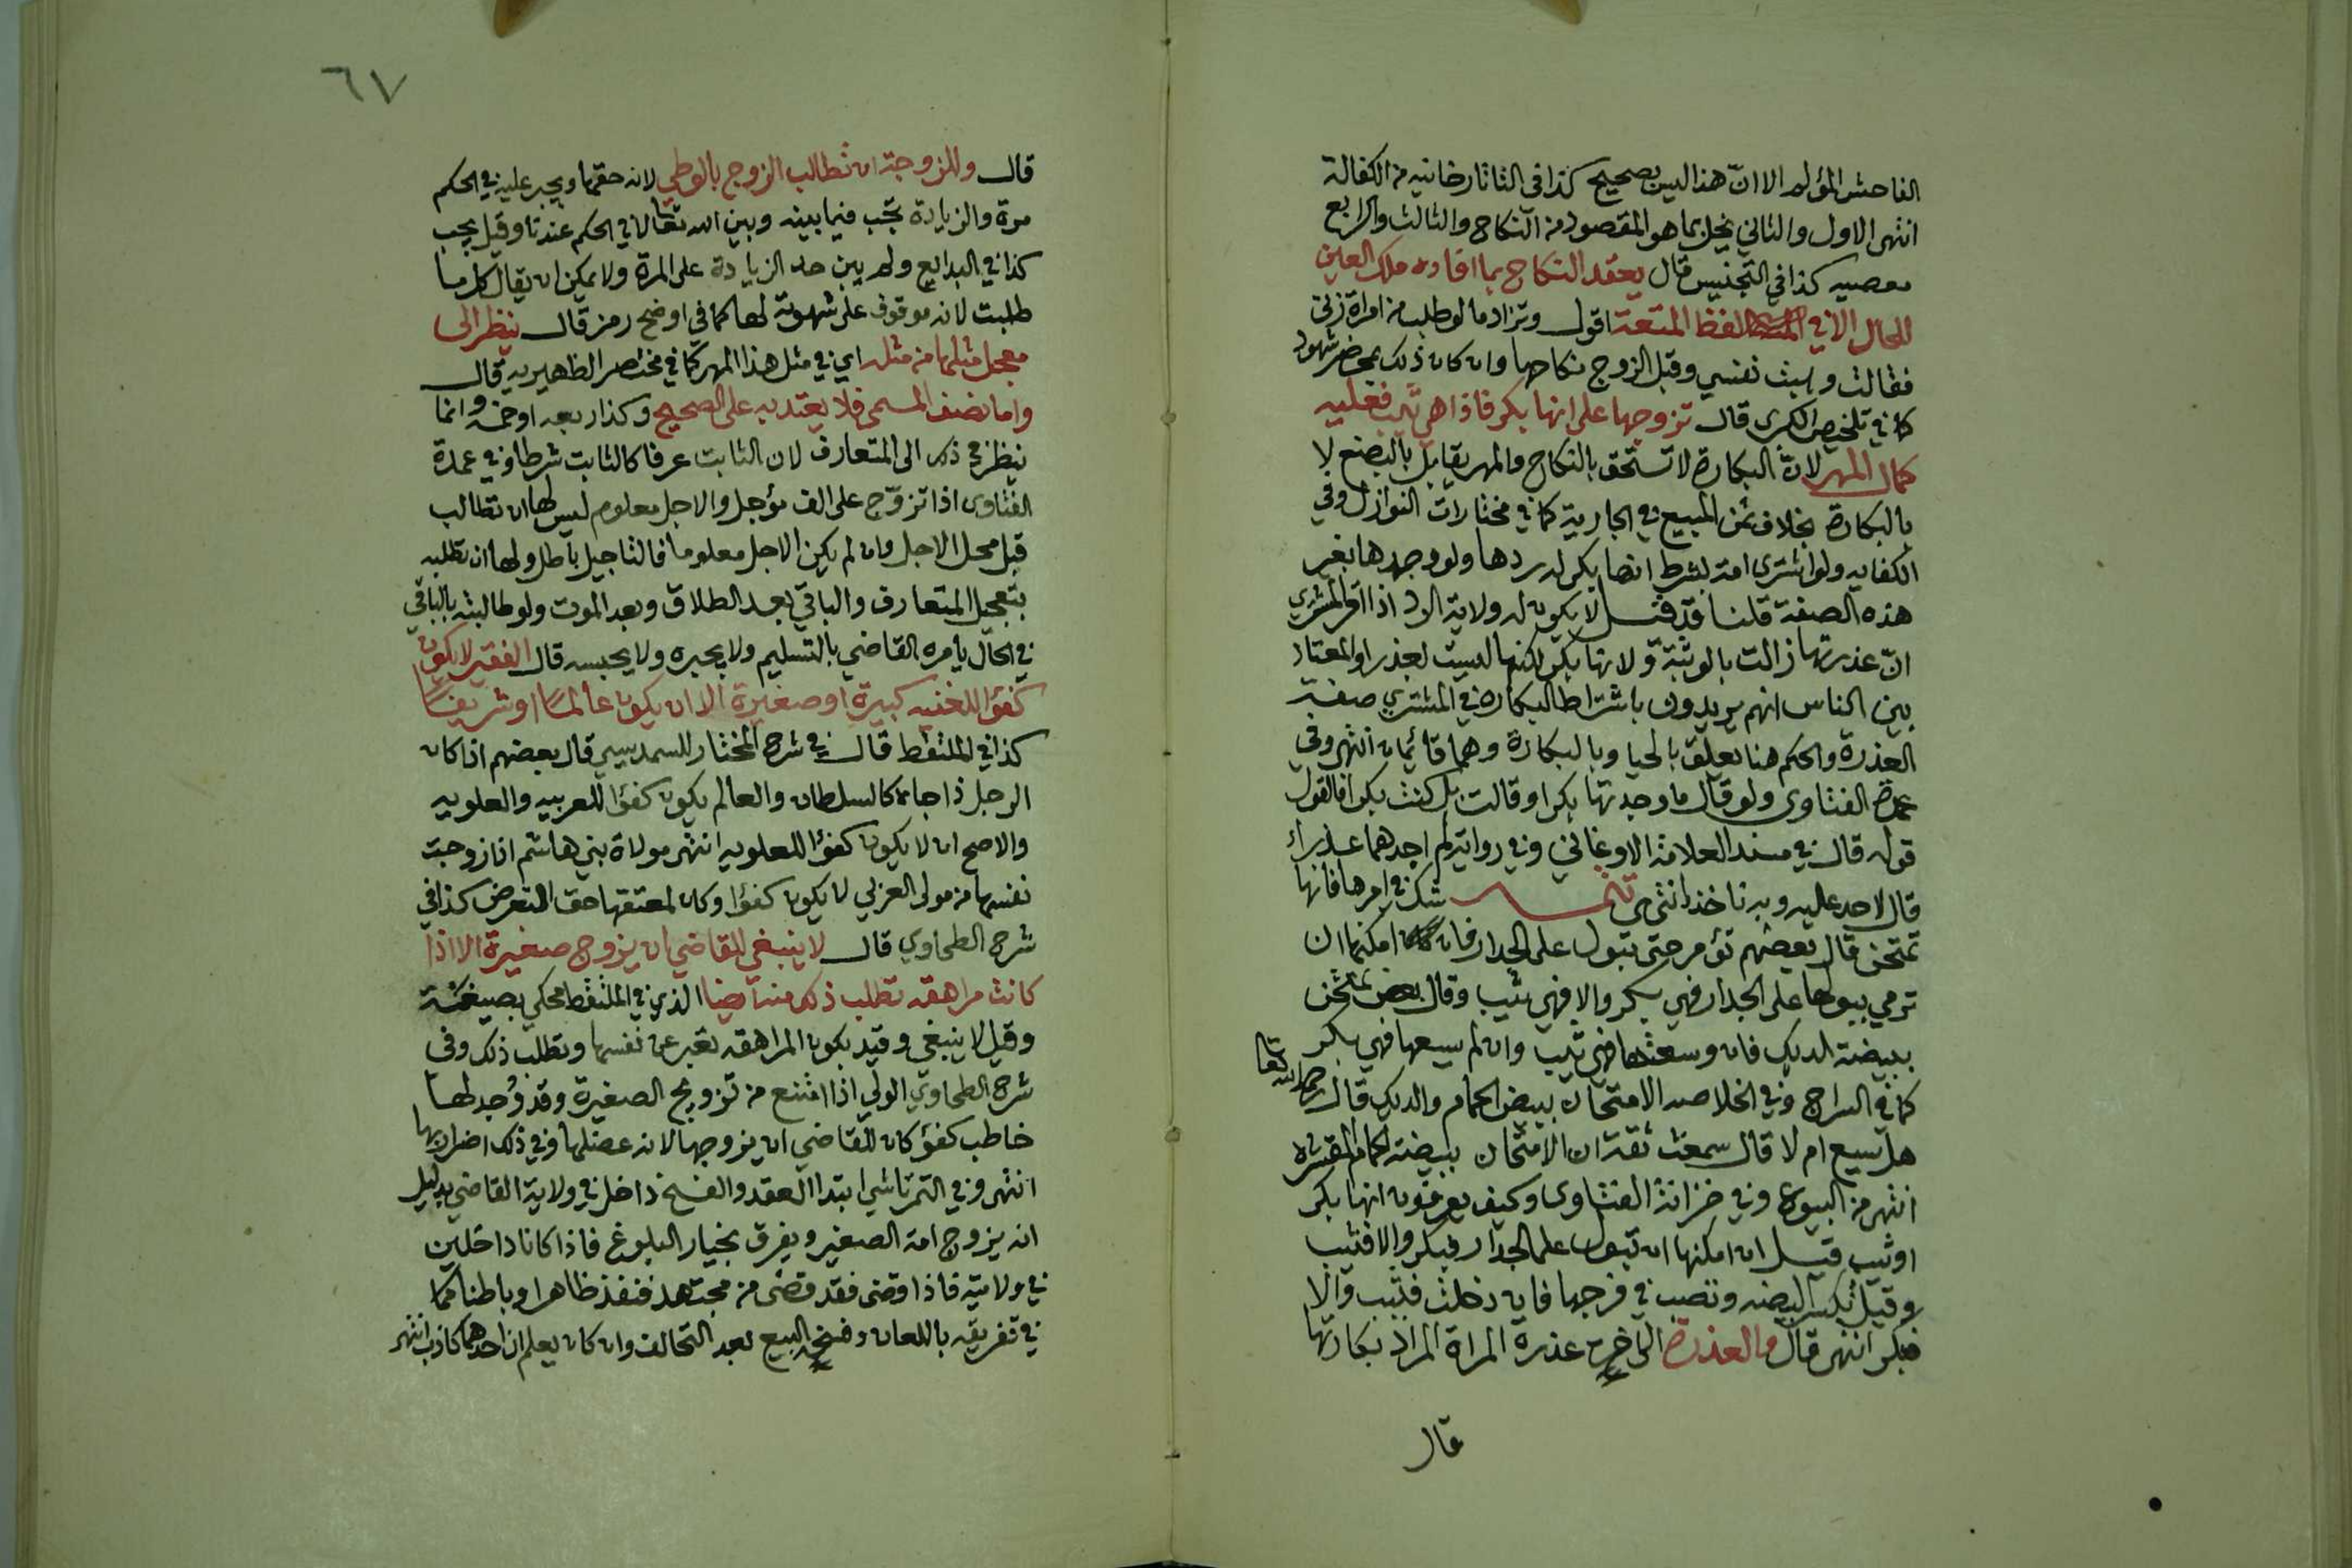 الفاحش المؤلم الا انّ هذا ليس بصحيح كذا في التاتارخانيه من الكفالة
انتهى الاول والثاني يخل بما هو المقصود من النكاح والثالث والرابع
معصيه كذا في التجنيس قال يعقد النكاح بما افاد ملك العين
للحال الا في لفظ المتعة اقول ويزاد ما لو طلب من امراة زنى
فقالت وهبت نفسي وقبل الزوج نكاحها وان كان ذلك بمحضر شهود
كما في تلخيص الكبرى قال تزوجها على انها بكر فاذا هي ثيب فعليه
كمال المهر لانّ البكارة لا تستحق بالنكاح والمهر يقابل بالبضع لا
بالبكارة بخلاف ثمن المبيع في الجارية كما في مختارات النوازل وفي
الكفايه ولو اشترى امة بشرط انها بكر له ردها ولو وجدها بغير
هذه الصفة قلنا قد قيل لا يكون له ولاية الرد اذا اقر المشتري
انّ عذرتها زالت بالوثبة ولانها بكر لكنها ليست بعذرا والمعتاد
بين الناس انهم يريدون باشتراط البكارة في المشتري صفة
العذرة والحكم هنا يعلق بالحيا وبالبكارة وهما قائمان انتهى وفي
عمدة الفتاوى ولو قال ما وجدتها بكرا وقالت بل كنت بكرا فالقول
قوله قال في مسند العلامة الاوغاني وفي رواية لم اجدها عذراء
قال لاحد عليه وبه ناخذ انتهى تتمـــة شك في امرها فانها
تمتحن قال بعضهم تؤمر حتى تبول على الجدار فان امكنها ان
ترمي ببولها على الجدار فهي بكر والا فهي ثيب وقال بعض تمتحن
ببيضة الديك فان وسعتها فهي ثيب وان لم يسعها فهي بكر
كما في السراج وفي الخلاصه الامتحان ببيض الحمام والديك قال رحمه الله تعالى
هل تسع ام لا قال سمعت ثقة ان الامتحان ببيضة الحمام المقشرة
انتهى من البيوع وفي خزانة الفتاوى وكيف يعرفون انها بكر
او ثيب قيل ان امكنها ان تبول على الجدار فبكر والا فثيب
وقيل تكسر البيضه وتصب في فرجها فان دخلت فثيب والا
فبكر انتهى قال والعذرة الى اخره عذرة المراة المراد بكارتها
قال
٦٧
قال وللزوجة ان تطالب الزوج بالوطي لانه حقها ويجبر عليه في الحكم
مرة والزيادة تجب فيما بينه وبين الله تعالى لا في الحكم عندنا وقيل يجب
كذا في البدايع ولم يبين حد الزيادة على المرة ولا يمكن ان يقال كل ما
طلبت لانه موقوف على شهوة لها كما في اوضح رمز قال ينظر الى
معجل مثلها من مثله اي في مثل هذا المهر كما في مختصر الظهيريه قال
واما نصف المسمى فلا يعتد به على الصحيح وكذا ربعه او خمسه وانما
ينظر في ذلك الى المتعارف لان الثابت عرفا كالثابت شرطا وفي عمدة
الفتاوى اذا تزوّج على الف مؤجل والاجل معلوم ليس لها ان تطالب
قبل محل الاجل وان لم يكن الاجل معلوما فالتاجيل باطل ولها ان تطلبه
بتعجيل المتعارف والباقي بعد الطلاق وبعد الموت ولو طالبته بالباقي
في الحال يأمره القاضي بالتسليم ولا يجبره ولا يحبسه قال الفقير لا يكون
كفؤا للغنيه كبيرة او صغيرة الا ان يكون عالما او شريفا
كذا في الملتقط قال في شرح المختار للسمديسي قال بعضهم اذا كان
الرجل ذا جاه كالسلطان والعالم يكون كفؤا للعربيه والعلويه
والاصح ان لا يكون كفؤا للعلويه انتهى مولاة بني هاشم اذا زوجت
نفسها من مولى العربي لا يكون كفؤا وكان لمعتقها حق التعرض كذا في
شرح الطحاوي قال لا ينبغي للقاضي ان يزوج صغيرة الا اذا
كانت مراهقه تطلب ذلك منه رضيا الذي في الملتقط محكي بصيغة
وقيل لا ينبغي وقيد بكون المراهقه تعبر عن نفسها وتطلب ذلك وفي
شرح الطحاوي الولي اذا امتنع من تزويج الصغيرة وقد وُجد لها
خاطب كفؤ كان للقاضي ان يزوجها لانه عضلها وفي ذلك اضرار بها
انتهى وفي التمرتاشي ابتدا العقد والفسخ داخل في ولاية القاضي بدليل
انه يزوج امة الصغير ويفرق بخيار البلوغ فاذا كانا داخلين
في ولايته فاذا قضى فقد قضى من مجتهد فنفذ ظاهرا وباطنا كما
في تفريقه باللعان وفسخه البيع بعد التحالف وان كان يعلم ان احدهما كاذب انتهى